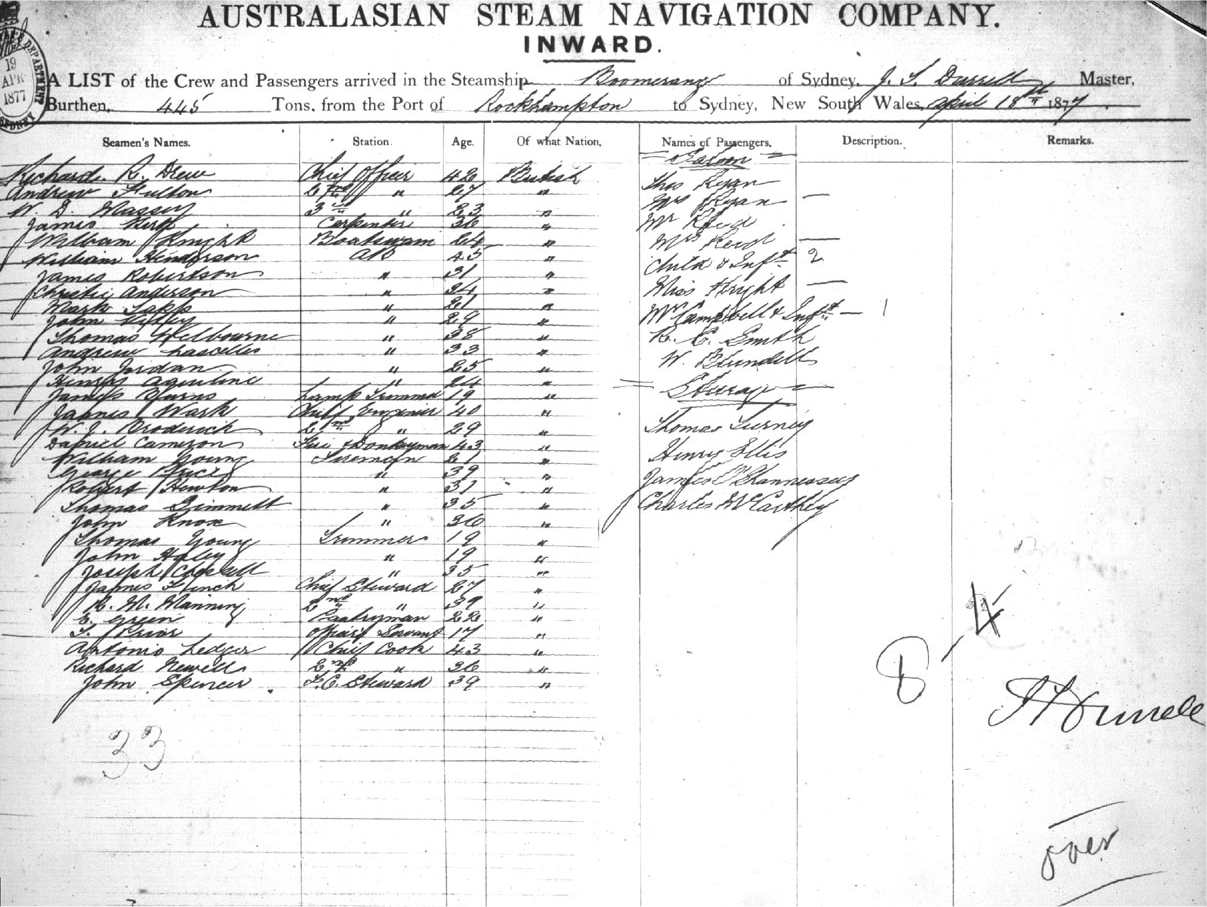 AUSTRALASIAN STEAM NAVIGATION COMPANY.
INWARD.
19
APR
1877
DEPARTMENT
SYDNEY
A LIST of the Crew and Passengers arrived in the Steamship Boomerang of Sydney, J. S. Durrell Master,
Burthen, 445 Tons, from the Port of Rockhampton to Sydney, New South Wales, April 18th 1877
Seamen's Names. Station. Age. Of what Nation. Names of Passengers. Description. Remarks.
= Saloon =
Richard R. Drew Chief Officer 42 British Thos Ryan
Andrew Fulton 2nd " 27 " Mrs Ryan —
W. D. Massey 3rd " 23 " Mr Reid
James Carpenter 36 " Mrs Reid —
William Knight Boatswain 24 " Child & Inft 2
William Henderson AB 45 " Miss Hright —
James Robertson " 31 " Mrs Campbell & Inft — 1
Christie Anderson " 24 " R. E. Smith
Mark " 21 " W. Blundell
John " 29 " = Steerage =
Thomas Welbourne " 38 " Thomas Turney
Andrew Lascelles " 33 " Henry Ellis
John Jordan " 25 " James
Henry " 24 " Charles McCarthy
James Burns Lamp Trimmer 19 "
James Wark Chief Engineer 40 "
W. J. Broderick 2nd " 29 "
Daniel Cameron Donkeyman 43 "
William Young Fireman "
George Price " 39 "
Robert Howton " 31 "
Thomas Dimmett " 35 "
John Knox " 36 "
Thomas Young Trimmer 19 "
John Haley " 19 "
Joseph " 35 "
James Finch Chief Steward 27 "
R. M. Manning 2nd " 39 "
E. Green Pantryman 22 "
T. Prior Officers Servant 17 "
Antonio Ledger Chief Cook 43 "
Richard Newell 2nd " 36 "
John Spencer F. C. Steward 39 "
33
8 - 4
J S Durrell
over